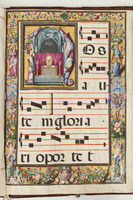 OS
au
te m gloria
ri opor te t